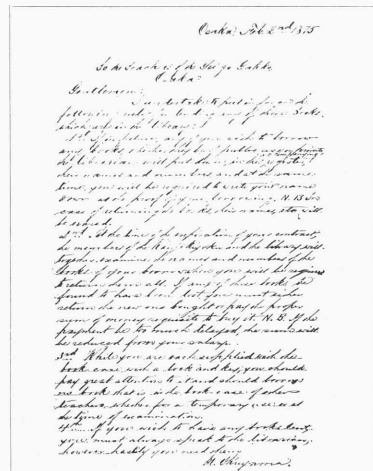 Osaka, Feb. 2nd 1875
To the Teachers of the Sei go Gakko
Osaka
Gentlemen:
I undertake to put in force the
following rules in lending any of those Books,
which are in the Library:
1st In future, any of you wish to borrow
any books, whether they be public or private,
the Librarian will put down in the register
their names and numbers and at the same
time, you will be required to write your name
down as the proof of your borrowing. N.B. In
case of returning the books, their names, etc. will
be erased.
2nd At the time of the expiration of your contract,
the members of the and the Library will
together examine the names and numbers of the
books of your borrow when you will be required
to return them all. If any of these books be
found to have been lost you must either
return the new one bought or pay the proper
sum of money requisite to buy it. N.B. If the
payment be too much delayed, the sum will
be reduced from your salary.
3rd While you are each supplied with the
book case with a lock and key, you should
pay great attention to it and should borrow
no book that is in the book case of other
teachers, whether for a temporary use or at
the time of examination.
4th If you wish to have any books lent,
you must always speak to the librarian,
however hastily you need them.
H. Okuyama